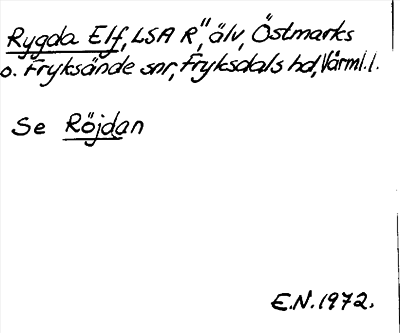 Rygda Elf, LSA R", älv, Östmarks
o. Fryksände snr, Fryksdals hd, Värml.l.
Se Röjdan
E.N. 1972.